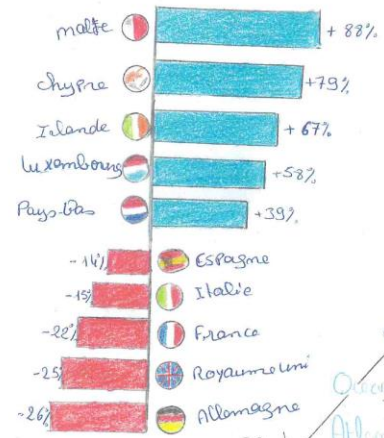 malte + 88%
chypre +79%
Irlande + 67%
Luxembourg +58%
Pays-Bas +39%
-14% Espagne
-15% Italie
-22% France
-25% Royaume uni
-26% Allemagne